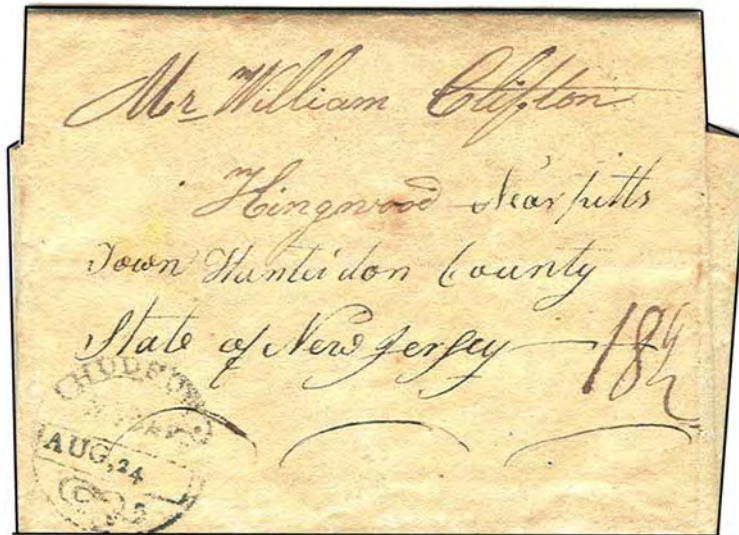 Mr. William Clifton
Kingwood Near pitts
Town Hunterdon County
State of New Jersey 18 1/2
HUDSON
AUG, 24